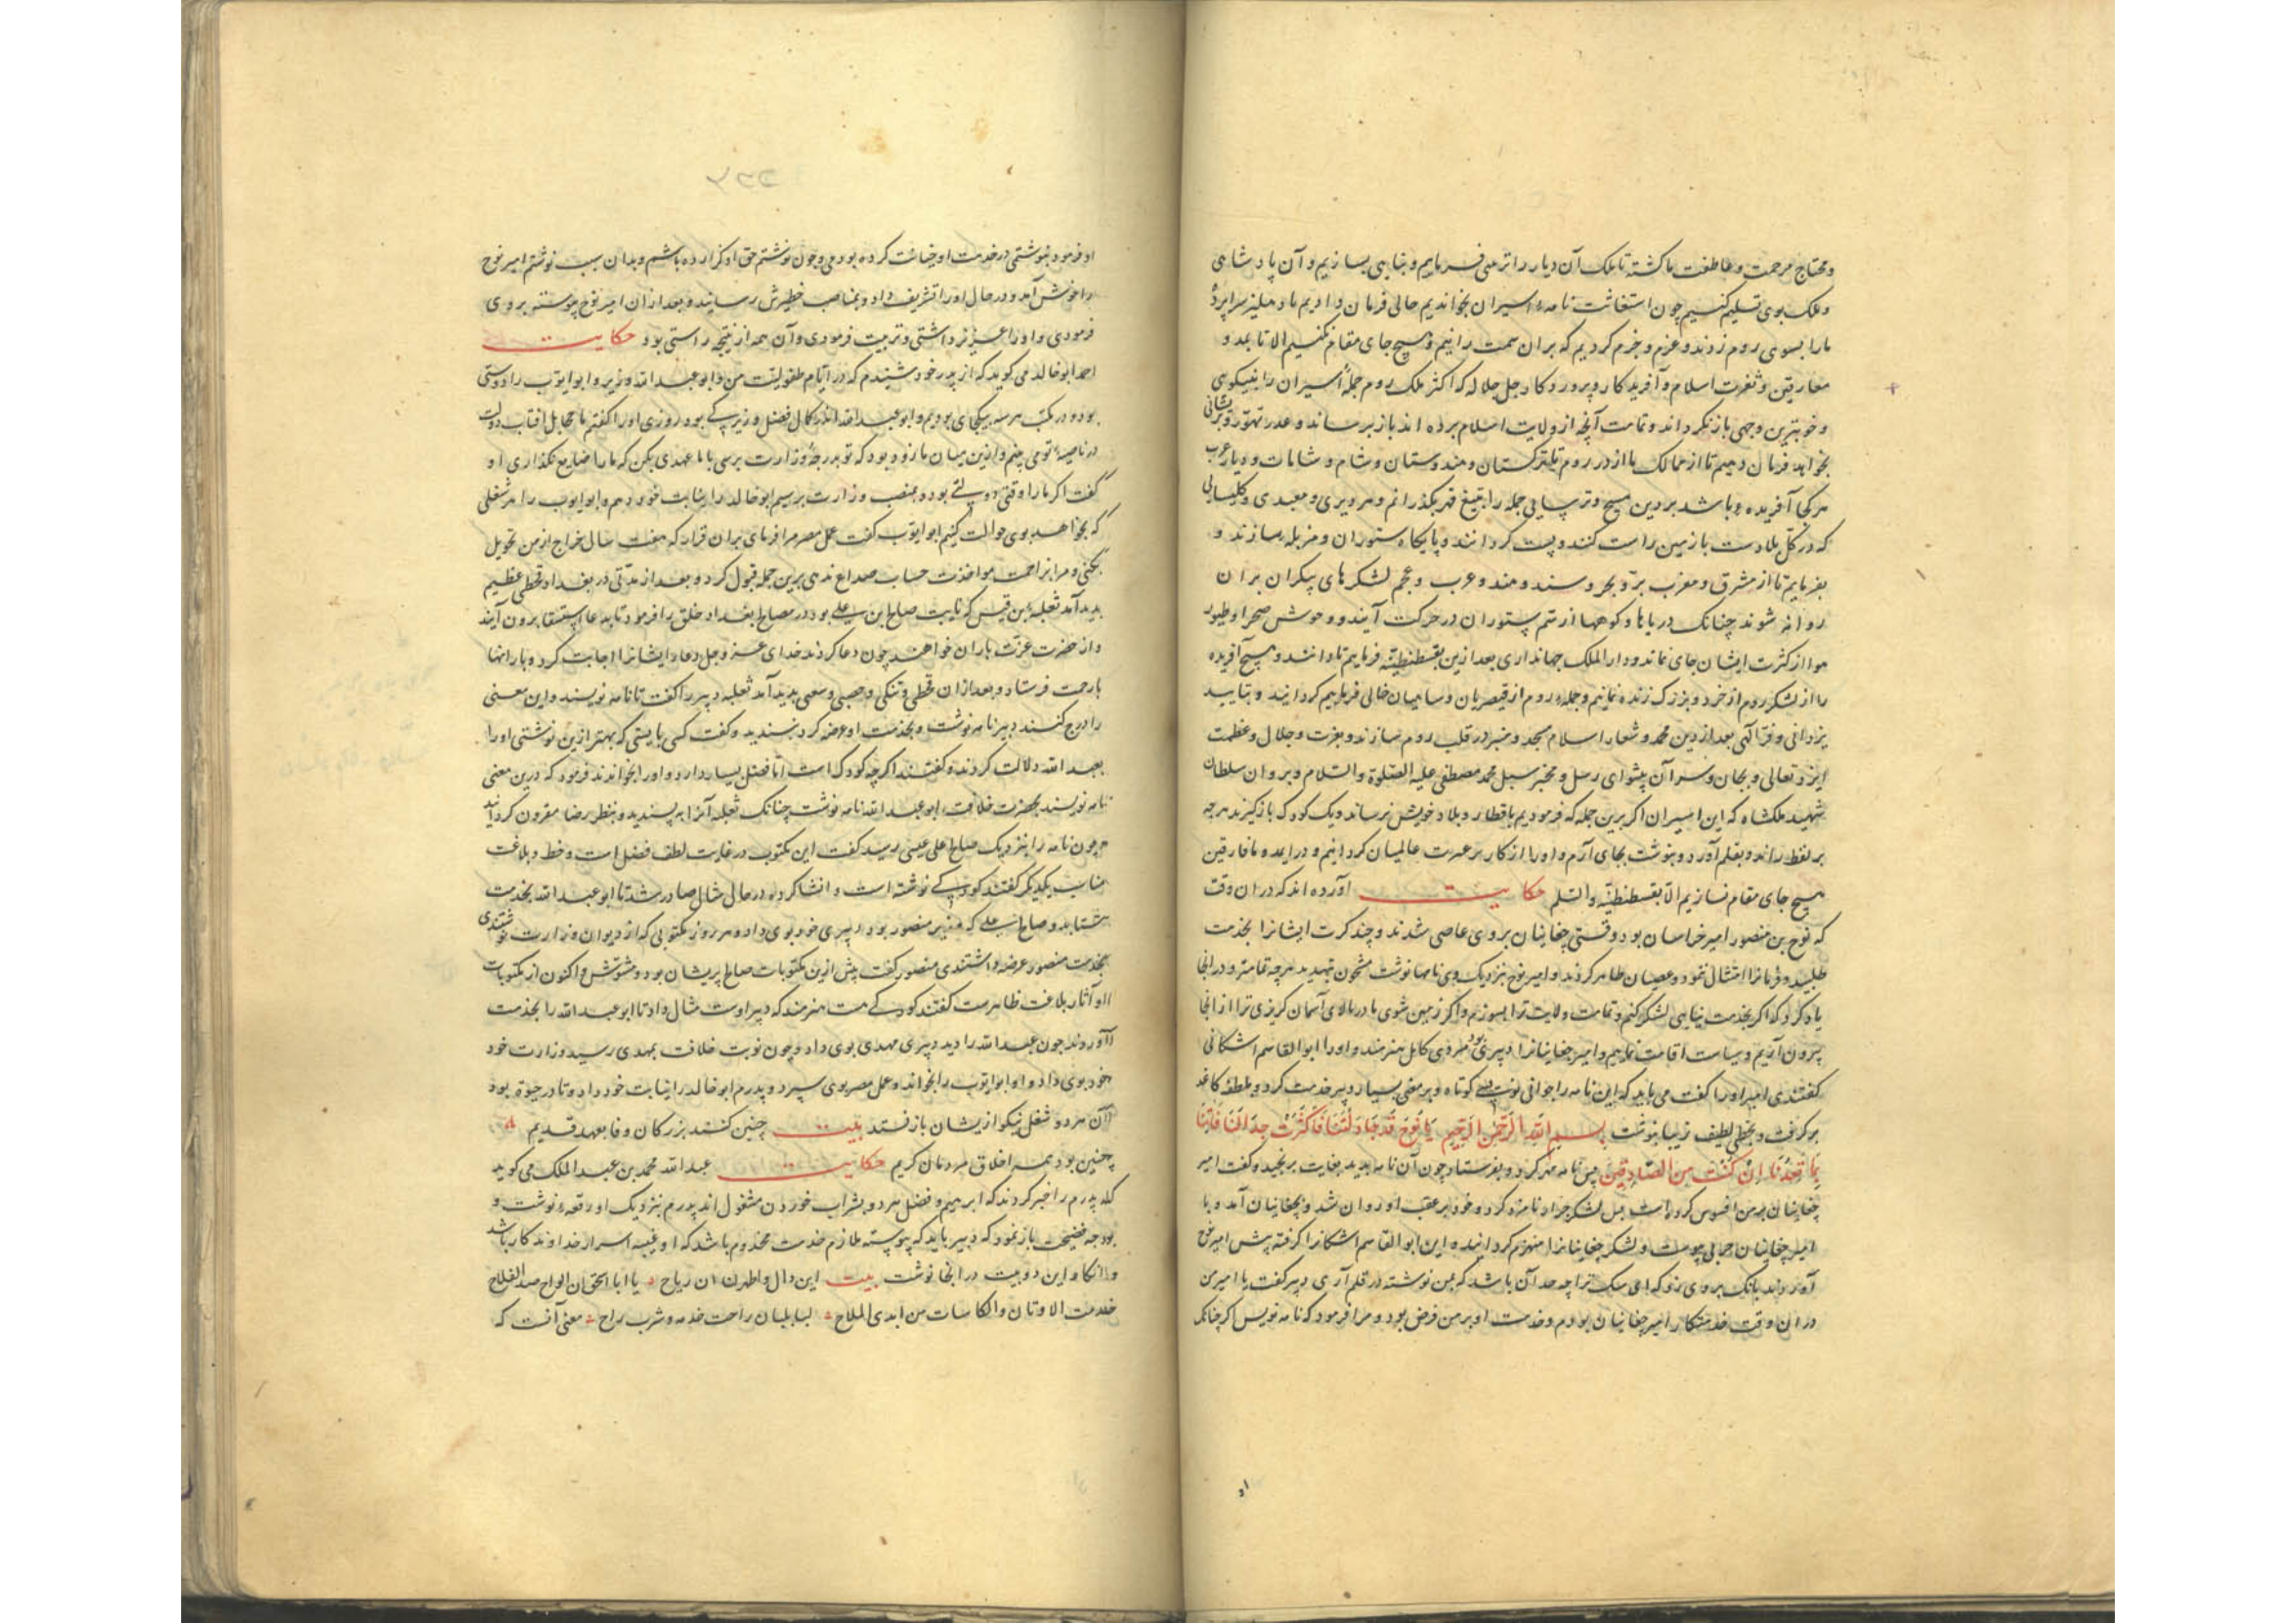 و محتاج مرحمت و عاطفت ما کشته تا ملک آن دیار را فرماییم و بنایی بسازیم و آن پادشاهی
و ملک بوی تسلیم کنیم چون استغاثت نامهٔ اسیران بخواندیم حالی فرمان دادیم تا دهلیز سراپردهٔ
ما را بسوی روم زدند و عزم و جزم کردیم که بران سمت رانیم و هیچ جای مقام نکنیم الا تا بمد و
معارقین و ثغرت اسلام و آفریدکار و پروردکار جل جلاله که اکثر ملک روم جملهٔ اسیران را بنیکویی
و خوبترین وجهی باز کرداند و تمامت آنچه از ولایت اسلام برده اند باز برساند و عذر تهور و پریشانی
بخواهد فرمان دهیم تا از ممالک ما از در روم تا ترکستان و هندوستان و شام و شامات و دیار عرب
هر کجا آفریده باشد بر دین مسیح و ترسایی جمله را بتیغ قهر بکذرانم و هر دیری و معبدی و کلیسایی
که در کل بلادست با زمین راست کنند و پست کردانند و پایکاه ستوران و مزبله سازند و
بفرمایم تا از مشرق و مغرب بر و بحر و سند و هند و عرب و عجم لشکرهای بیکران بران
روانه شوند چنانک دریاها و کوهها از سم ستوران در حرکت آیند و وحوش صحرا و طیور
هوا از کثرت ایشان جای نماند و دار الملک جهانداری بعد ازین بقسطنطنیه فرماییم تا دانند و هیچ آفریده
را از لشکر روم از خرد و بزرک زنده نمانیم و جملهٔ روم از قیصریان و سپاهیان خالی فرماییم کردانید و بتایید
یزدانی و فر آلهی بعد از دین محمد و شعار اسلام مسجد و منبر در قلب روم سازند و بعزت و جلال و عظمت
ایزد تعالی و بجان و سر آن پیشوای رسل و مخبر سبل محمد مصطفی علیه الصلوة والسلام و بروان سلطان
شهید ملکشاه که این اسیران اکر برین جمله که فرمودیم باقطار و بلاد خویش نرساند و یک کودک باز کیرند هرچه
بر لفظ راند و بقلم آورد و بنوشت بجای آرم و او را از کار بر عبرت عالمیان کردانیم و در آمد و ما فارقین
هیچ جای مقام نسازیم الا بقسطنطنیه والسلم حکایت آورده اند که دران وقت
که نوح بن منصور امیر خراسان بود وقتی چغانیان بروی عاصی شدند و چند کرت ایشانرا بخدمت
طلبید و فرمانرا امتثال ننمود و عصیان ظاهر کردند و امیر نوح نزدیک وی نامها نوشت مشحون بتهدید هرچه تمامتر و درانجا
یاد کرد که اکر بخدمت نیایی لشکر کنم و تمامت ولایت ترا بسوزم و اکر زمین شوی یا در بالای آسمان کریزی ترا از انجا
بیرون آریم و سیاست اقامت نماییم و امیر چغانیانرا دبیری بود مردی کامل هنرمند و او را ابو القاسم اشکانی
کفتندی امیر او را کفت می باید که این نامه را جوابی نویسی کوتاه و پر معنی بسیار دبیر خدمت کرد و ملطفه کاغذ
بر کرفت و بخطی لطیف زیبا بنوشت بسم الله الرحمن الرحیم یا نوح قد جادلتنا فاکثرت جدالنا فاتنا
بما تعدنا ان کنت من الصادقین پس نامه مهر کرد و بفرستاد چون آن نامه بدید بغایت برنجید و کفت امیر
چغانیان بر من افسوس کرده است پس لشکر جرار نامزد کرد و خود بر عقب او روان شد و بچغانیان آمد و با
امیر چغانیان حرب پیوست و لشکر چغانیانرا منهزم کردانید و این ابو القاسم اشکانرا کرفته پیش امیر نوح
آوردند بانک بروی زد که ای سک ترا چه حد آن باشد که بمن نوشته در قلم آری دبیر کفت یا امیر من
دران وقت خدمتکار امیر چغانیان بودم و خدمت او بر من فرض بود و مرا فرمود که نامه نویس اکر چنانک
او فرمود ننوشتمی در خدمت او خیانت کرده بودمی و چون نوشتم حق او کزارده باشم و بدان سبب نوشتم امیر نوح
را خوش آمد و در حال او را تشریف داد و بمناصب خطیرش رسانید و بعد ازان امیر نوح پیوسته بروی
فرمودی و او را عزیز داشتی و تربیت فرمودی و آن همه از نتیجه راستی بود حکایت
احمد ابو خالد می کوید که از پدر خود شنیدم که در ایام طفولیت من و ابو عبد الله وزیر و ابو ایوب را دوستی
بود و در مکتب هر سه بیکجای بودیم و ابو عبد الله اندر کمال فضل و زیرکی بود روزی او را کفتم مخایل افتاب دولت
در ناصیهٔ تو می بینم و ازین میان ما زود بود که تو بدرجهٔ وزارت برسی با ما عهدی بکن که ما را ضایع نکذاری او
کفت اکر ما را وقتی دولتی بود و بمنصب وزارت برسیم ابو خالد را نیابت خود دهم و ابو ایوب را هر شغلی
که بخواهد بوی حوالت کنیم ابو ایوب کفت عمل مصر مرا فرمای بران قرار که هفت سال خراج از من تحویل
نکنی و مرا بزاحمت مواخذت حساب صداع ندهی برین جمله قبول کرد و بعد از مدتی در بغداد قحطی عظیم
بدید آمد ثعلبهٔ بن قیس که نایب صالح ابن علی بود در مصالح بغداد خلق را فرمود تا بدعا استسقا برون آیند
و از حضرت عزت باران خواهند چون دعا کردند خدای عز و جل دعاء ایشانرا اجابت کرد و بارانها
بارحمت فرستاد و بعد ازان قحطی و تنکی و خصبی و سعی بدید آمد ثعلبه دبیر را کفت تا نامه نویسند و این معنی
را درج کنند دبیر نامه نوشت و بخدمت او عرضه کرد نپسندید و کفت کسی بایستی که بهتر ازین نوشتی او را
بعبد الله دلالت کردند و کفتند اکرچه کودک است اما فضل بسیار دارد و او را بخواندند فرمود که درین معنی
نامه نویسند بحضرت خلافت ابو عبد الله نامه نوشت چنانک ثعلبه آنرا به پسندید و بنظر رضا مقرون کردانید
چون نامه را بنزدیک صالح علی عیسی رسید کفت این مکتوب در غایت لطف فضل است و خط و بلاغت
مناسب یکدیکر کفتند کودکی نوشته است و انشا کرده در حال مثال صادر شد تا ابو عبد الله بخدمت
شتابد و صالح علی که وزیر منصور بود دبیری خود بوی داد و هر روز مکتوبی که از دیوان وزارت نوشتندی
بخدمت منصور عرضه داشتندی منصور کفت پیش ازین مکتوبات صالح پریشان بود و مشوش و اکنون از مکتوبات
او آثار بلاغت ظاهرست کفتند کودکی هست هنرمند که دبیر اوست مثال داد تا ابو عبد الله را بخدمت
آوردند چون عبد الله را دید دبیری مهدی بوی داد و چون نوبت خلافت بمهدی رسید وزارت خود
خود بوی داد و او ابو ایوب را بخواند و عمل مصر بوی سپرد و پدرم ابو خالد را نیابت خود داد و تا در حیوة بود
آن هر دو شغل نیکو از یشان باز نستد بیت چنین کنند بزرکان وفا بعهد قدیم
چنین بود همه اخلاق مردمان کریم حکایت عبد الله محمد بن عبد الملک می کوید
که پدرم را خبر کردند که ابرهیم و فضل هر دو بشراب خوردن مشغول اند پدرم بنزدیک او رقعهٔ نوشت و
بوجه نصیحت باز نمود که دبیر باید که پیوسته ملازم خدمت مخدوم باشد که او عیبهٔ اسرار خداوند کار باشد
و این دو بیت درانجا نوشت بیت این دال و اظهرن ان ریاح یا ابا اسحق ان الواح ضد الفلاح
خدمت الاوتان والکاسات من ابدی الملاح لسابلسان راحت خدمه و شرب راح معنی آنست که